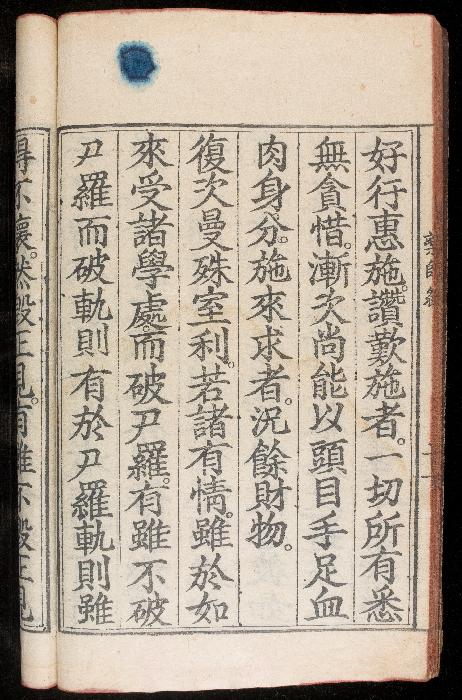 藥師經
好行惠施。讚歎施者。一切所有悉
無貪惜。漸次尚能以頭目手足血
肉身分。施來求者。況餘財物。
復次曼殊室利。若諸有情。雖於如
來受諸學處。而破尸羅。有雖不破
尸羅而破軌則有於尸羅軌則雖
得不壞。然毀正見。有雖不毀正見